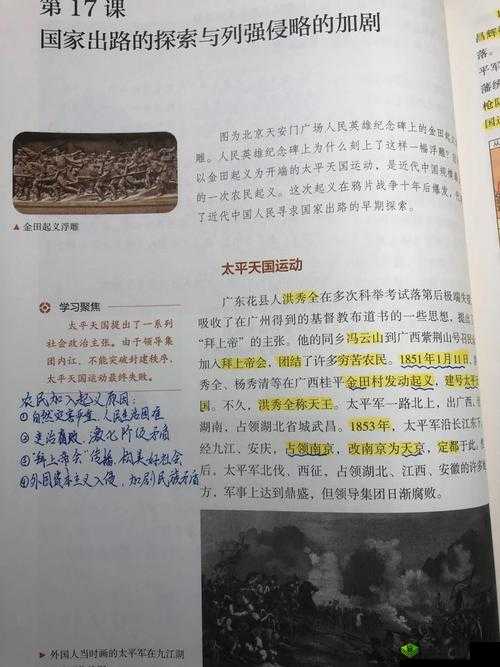 第 17 课
国家出路的探索与列强侵略的加剧
图为北京天安门广场人民英雄纪念碑上的金田起义
雕。人民英雄纪念碑上为什么刻上了这样一幅浮雕？
以金田起义为开端的太平天国运动，是近代中国规模
的一次农民起义。这次起义在鸦片战争十年后爆发，
了近代中国人民寻求国家出路的早期探索。
▲ 金田起义浮雕
太平天国运动
学习聚焦
太平天国提出了一系列
社会政治主张。由于领导集
团内讧，不能突破封建秩序，
太平天国运动最终失败。
农民加入起义原因：
①自然灾害严重，人民生活困难
②政治腐败，激化阶级矛盾
③"拜上帝会"传播，构美好社会
④外国资本主义入侵，加剧民族矛盾
广东花县人洪秀全在多次科举考试落第后极端失
吸收了在广州得到的基督教布道书的一些思想，提出
"拜上帝"的主张。他的同乡冯云山到广西紫荆山号召
加入拜上帝会，团结了许多穷苦农民。1851年1月11日，
秀全、杨秀清等在广西桂平金田村发动起义，建号太平
国。不久，洪秀全称天王。太平军一路北上，出广西、
湖南，占领湖北省城武昌。1853年，太平军沿长江东下
经九江、安庆，占领南京，改南京为天京，定都于此。
后，太平军北伐、西征，占领湖北、江西、安徽的许多
方，军事上达到鼎盛，但领导集团日渐腐败。
▶ 外国人当时画的太平军在九江湖
昌辉
落。
平军
藩
枪队
国运